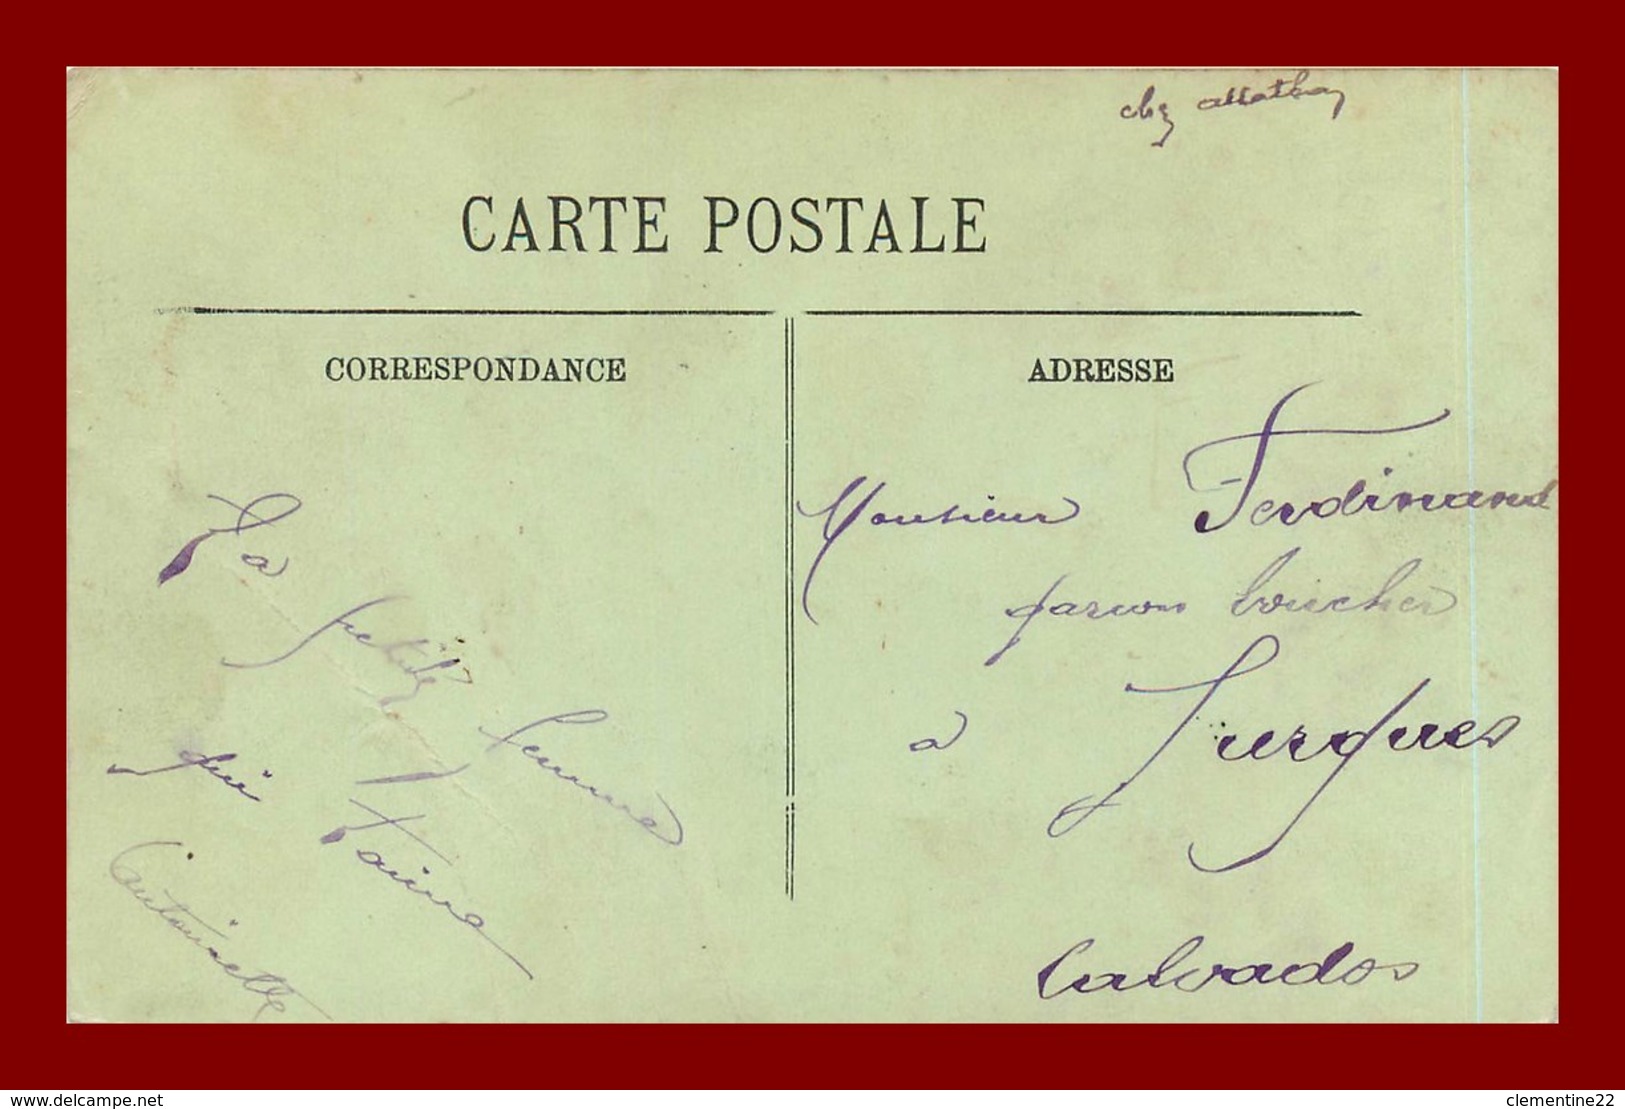 chez
CARTE POSTALE
CORRESPONDANCE
ADRESSE
Ta petite femme
qui t'aime
Antoinette
Monsieur Ferdinand
garcon boucher
a Jurques
Calvados
www.delcampe.net
clementine22